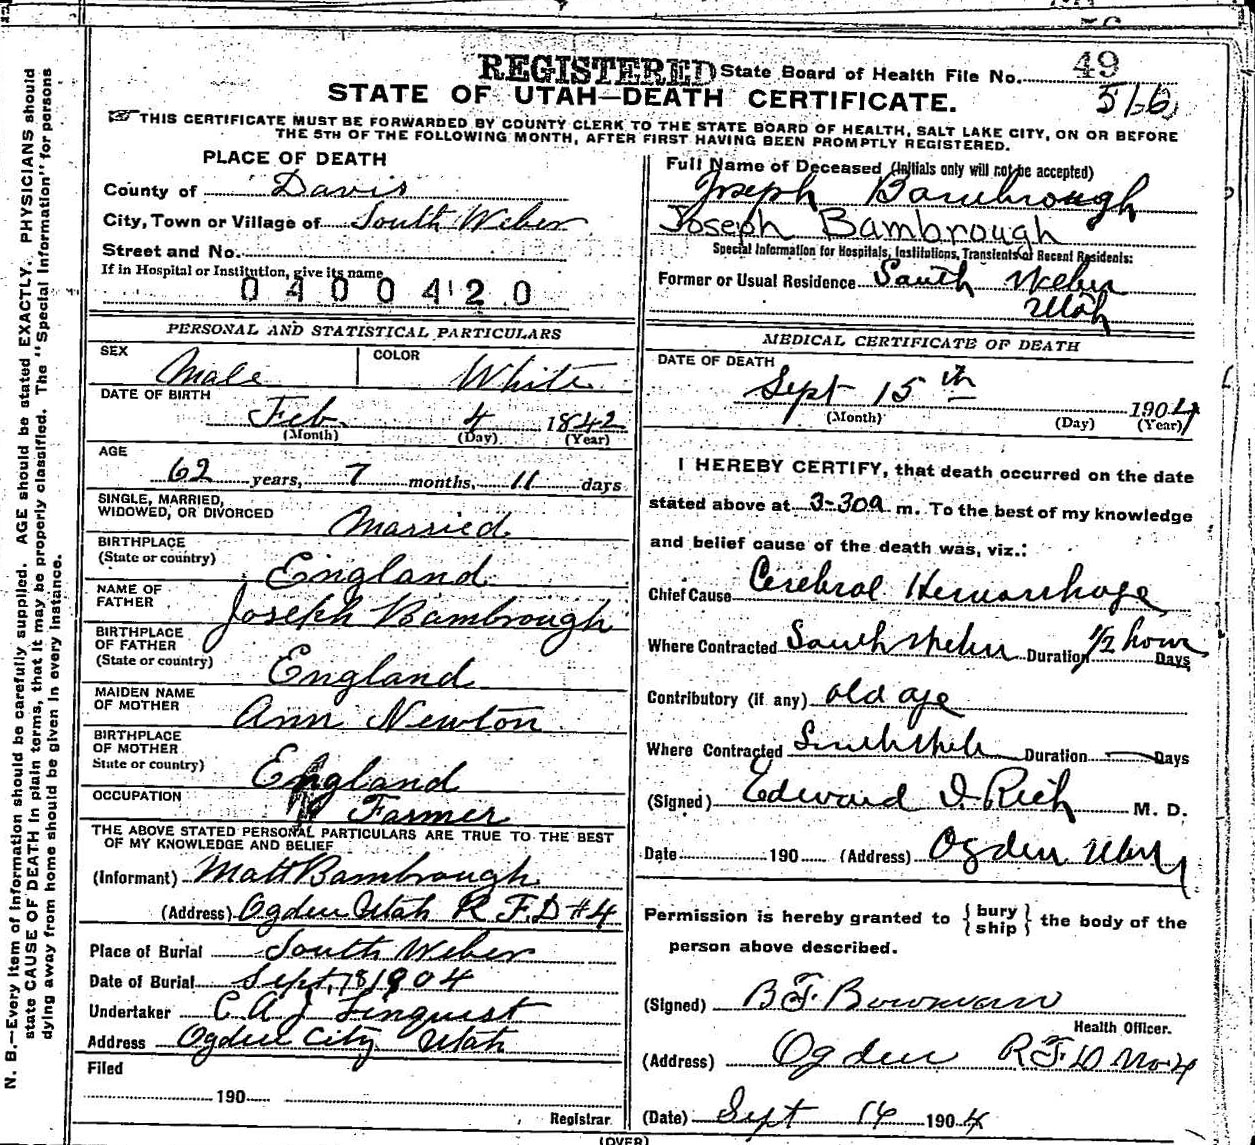 REGISTERED State Board of Health File No. 49
516
STATE OF UTAH—DEATH CERTIFICATE.
THIS CERTIFICATE MUST BE FORWARDED BY COUNTY CLERK TO THE STATE BOARD OF HEALTH, SALT LAKE CITY, ON OR BEFORE
THE 5TH OF THE FOLLOWING MONTH, AFTER FIRST HAVING BEEN PROMPTLY REGISTERED.
PLACE OF DEATH
County of Davis
City, Town or Village of South Weber
Street and No.
If in Hospital or Institution, give its name
0400420
PERSONAL AND STATISTICAL PARTICULARS
SEX Male COLOR White
DATE OF BIRTH
Feb 4 1842
(Month) (Day) (Year)
AGE
62 years, 7 months, 11 days
SINGLE, MARRIED,
WIDOWED, OR DIVORCED Married
BIRTHPLACE
(State or country) England
NAME OF
FATHER Joseph Bambrough
BIRTHPLACE
OF FATHER
(State or country) England
MAIDEN NAME
OF MOTHER Ann Newton
BIRTHPLACE
OF MOTHER
State or country) England
OCCUPATION Farmer
THE ABOVE STATED PERSONAL PARTICULARS ARE TRUE TO THE BEST
OF MY KNOWLEDGE AND BELIEF
(Informant) Matt Bambrough
(Address) Ogden Utah R.F.D #4
Place of Burial South Weber
Date of Burial Sept. 18 1904
Undertaker C A J Linquist
Address Ogden City Utah
Filed
190
Registrar
Full Name of Deceased (Initials only will not be accepted)
Joseph Bambrough
Joseph Bambrough
Special Information for Hospitals, Institutions, Transients or Recent Residents:
Former or Usual Residence South Weber
Utah
MEDICAL CERTIFICATE OF DEATH
DATE OF DEATH
Sept 15th 1904
(Month) (Day) (Year)
I HEREBY CERTIFY, that death occurred on the date
stated above at 3-30a m. To the best of my knowledge
and belief cause of the death was, viz.:
Chief Cause Cerebral Hemorrhage
Where Contracted South Weber Duration 1/2 hour Days
Contributory (if any) old age
Where Contracted South Weber Duration — Days
(Signed) Edward I. Rich M. D.
Date 190 (Address) Ogden Utah
Permission is hereby granted to {bury
ship} the body of the
person above described.
(Signed) B F Bowman
Health Officer.
(Address) Ogden R F D No 4
(Date) Sept 16 1904
(OVER)
N. B.—Every item of information should be carefully supplied. AGE should be stated EXACTLY. PHYSICIANS should
state CAUSE OF DEATH in plain terms, that it may be properly classified. The "Special Information" for persons
dying away from home should be given in every instance.